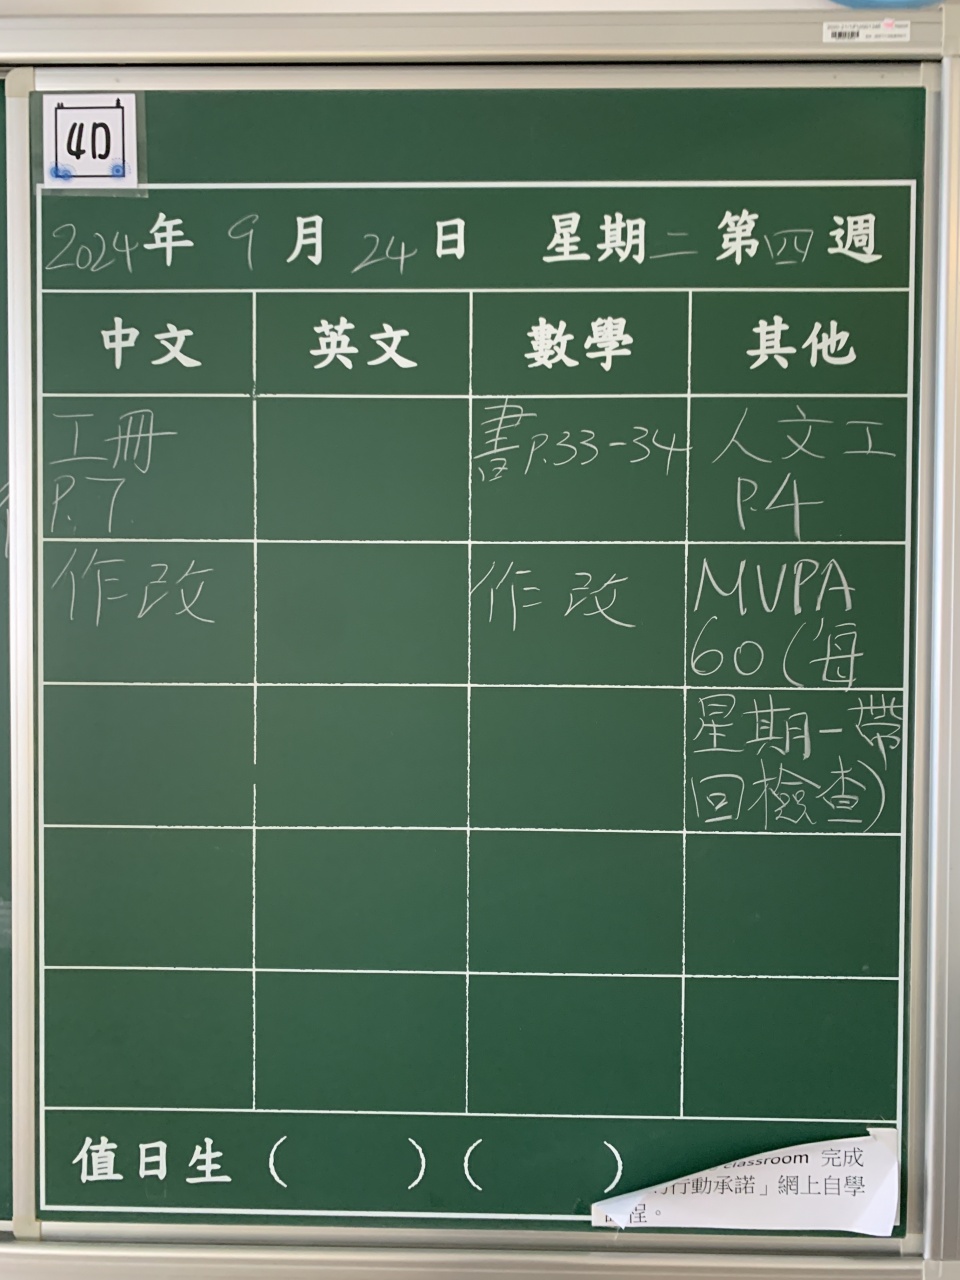 4D
2024年 9月 24日 星期二 第四週
中文 英文 數學 其他
工冊
P.7
書P.33-34
人文工
P.4
作改
作改
MVPA
60(每
星期一帶
回檢查)
值日生 ( ) ( )
classroom 完成
行動承諾」網上自學
程。